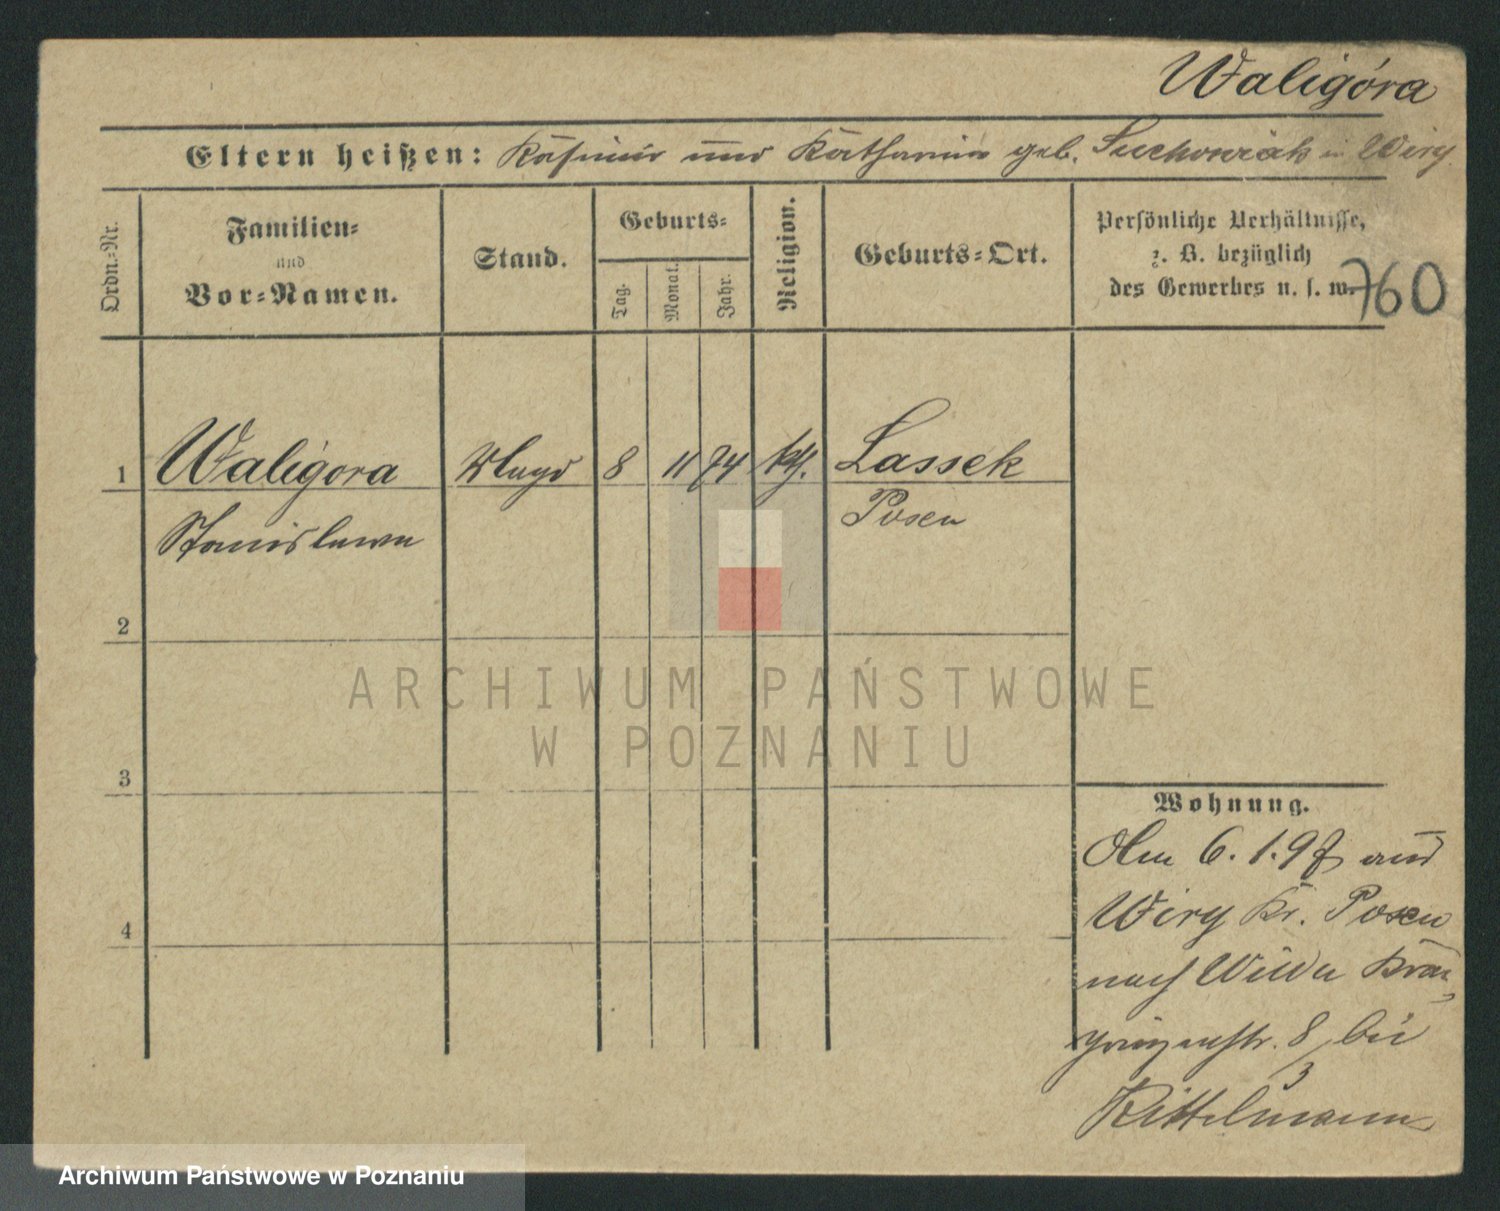 Waligóra
Eltern heißen: Kasimir und Katharina geb. Suchowiak in Wiry
Ordn.=Nr.
Familien=
und
Vor=Namen.
Stand.
Geburts=
Tag.
Monat.
Jahr.
Religion.
Geburts=Ort.
Persönliche Verhältnisse,
z. B. bezüglich
des Gewerbes u. s. w.
760
1 Waligora 8 11 74 kth. Lassek
Stanislawa Posen
2
3
4
Wohnung.
Am 6. 1. 97 aus
Wiry Kr. Posen
nach Wilda Kron=
prinzenstr. 8 bei
3
Rittelmann
ARCHIWUM PAŃSTWOWE
W POZNANIU
Archiwum Państwowe w Poznaniu